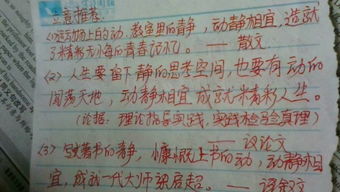 立意推荐:
(1)运动场上的动,教室里的静,动静相宜,造就
了精彩无悔的青春记忆。——散文
(2)人生要留下静的思考空间,也要有动的
闯荡天地,动静相宜成就精彩人生。
(论据:理论指导实践,实践检验真理)
——议论文
(3)写书著书的静,慷慨上书的动,动静相
宜,成就一代大师梁启超。——记叙文